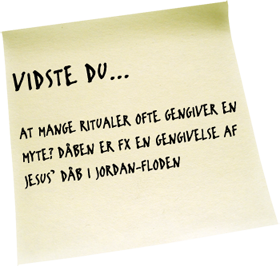 VIDSTE DU...
AT MANGE RITUALER OFTE GENGIVER EN
MYTE? DÅBEN ER FX EN GENGIVELSE AF
JESUS' DÅB I JORDAN-FLODEN